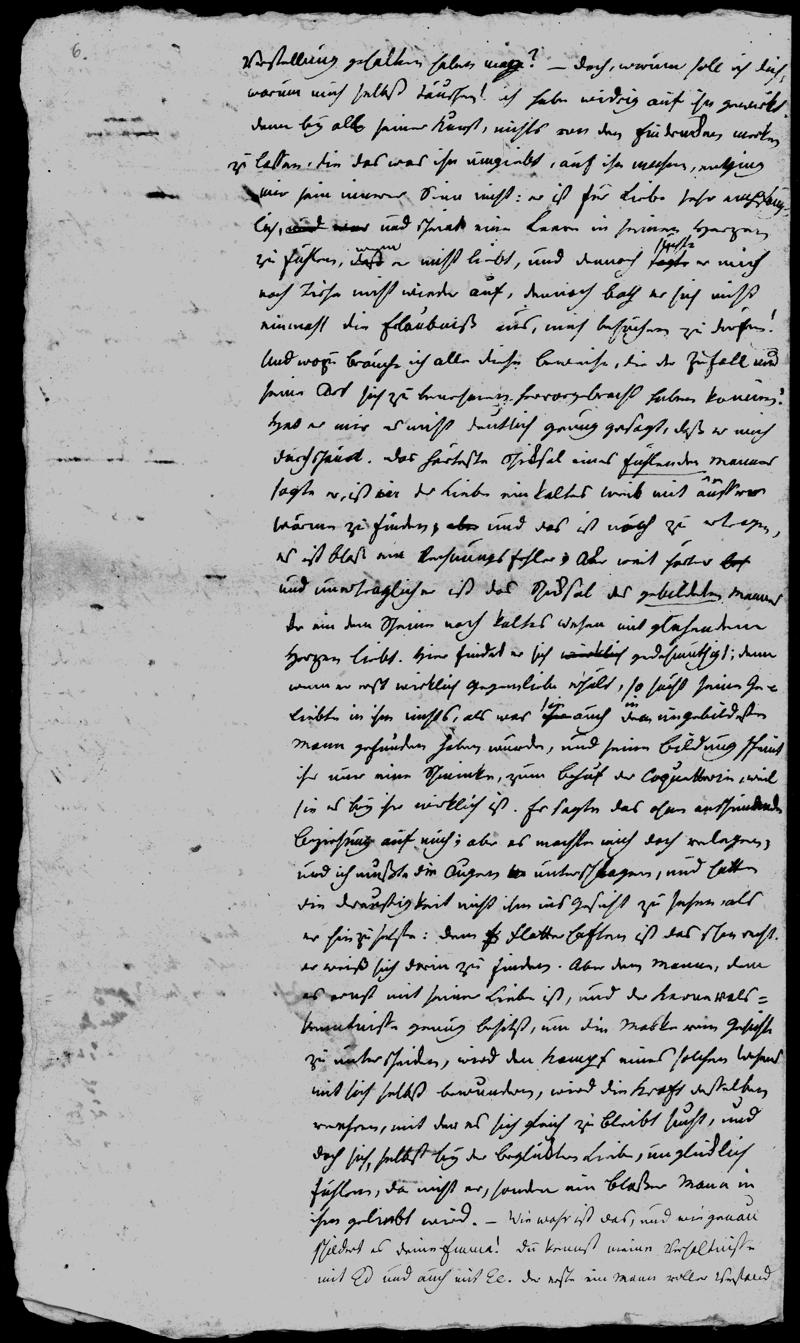 6.
Vorstellung gehalten haben mag? — doch, warum soll ich dich,
warum mich selbst täuschen! ich habe widrig auf ihn gewirkt.
denn bey aller seiner Kunst, nichts von den Eindrücken merken
zu lassen, die das was ihn umgiebt, auf ihn machen, entging
mir sein innerer Sinn nicht: er ist für Liebe sehr empfäng-
lich, und war und scheint eine Leere in seinem Herzen
zu fühlen, wenn er nicht liebt, und dennoch suchte er mich
nach Tische nicht wieder auf, dennoch bath er sich nicht
einmahl die Erlaubniß aus, mich besuchen zu dürfen!
Und wozu brauche ich alle diese Beweise, die der Zufall und
seine Art sich zu benehmen hervorgebracht haben können?
Hat er mir es nicht deutlich genug gesagt, daß er mich
durchschaut. das härteste Schicksal eines fühlenden Mannes
sagte er, ist in der Liebe ein kaltes Weib mit äusserer
Wärme zu finden, aber und das ist noch zu ertragen,
es ist blos ein Rechnungsfehler; Aber weit härter
und unerträglicher ist das Schicksal des gebildeten Mannes
der ein dem Scheine nach kaltes Wesen mit glühendem
Herzen liebt. Hier findet er sich wirklich gedemüthigt; denn
wenn er erst wirklich Gegenliebe erhält, so sucht seine Ge-
liebte in ihm nichts, als was sie auch in dem ungebildeten
Mann gefunden haben würde, und seine Bildung scheint
ihr nur eine Schminke, zum Behuf der Coquetterie, weil
sie es bey ihr wirklich ist. Er sagte das ohne anscheinende
Beziehung auf mich; aber es machte mich doch verlegen,
und ich mußte die Augen unterschlagen, und hatte
die Dreustigkeit nicht ihm ins Gesicht zu sehen, als
er hinzusetzte: dem Flatterhaften ist das schon recht.
er weiß sich darin zu finden. Aber dem Manne, dem
es ernst mit seiner Liebe ist, und der Karnevals=
kenntnisse genug besitzt, um die Maske vom Gesicht
zu unterscheiden, wird den Kampf eines solchen Wesens
mit sich selbst bewundern, wird die Kraft desselben
verehren, mit der es sich gleich zu bleiben sucht, und
doch sich, selbst bey der beglückten Liebe, unglücklich
fühlen, da nicht er, sondern ein bloßer Mann in
ihm geliebt wird. — Wie wahr ist das, und wie genau
schildert es deine Emma! du kennst meine Verhältnisse
mit Ed und auch mit El. der erste ein Mann voller Verstand